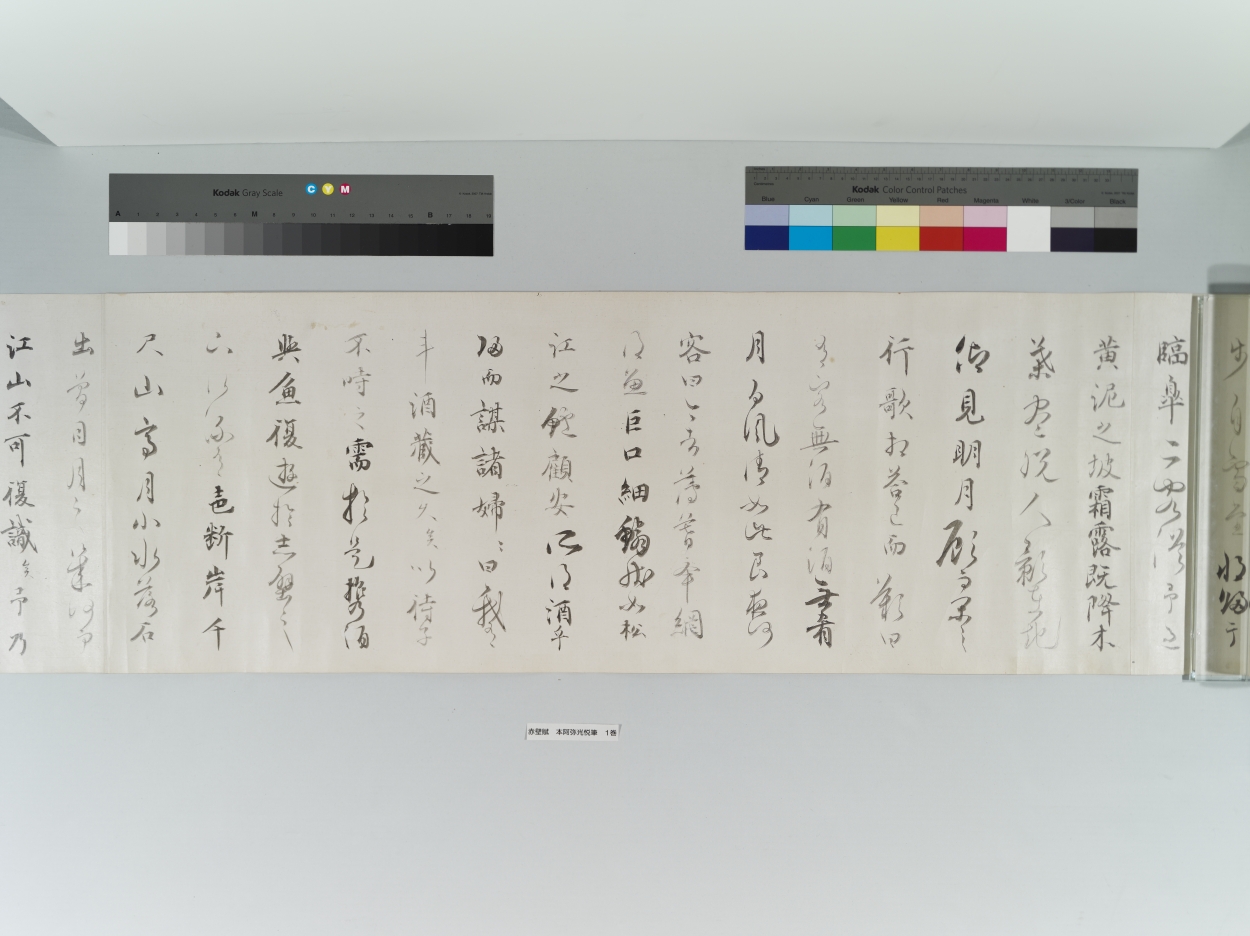 Kodak Gray Scale
C Y M
A 1 2 3 4 5 6 M 8 9 10 11 12 13 14 15 B 17 18 19
Kodak Color Control Patches
Blue Cyan Green Yellow Red Magenta White 3/Color Black
步自雪堂將歸于
臨皐二客從予過
黄泥之坡霜露既降木
葉盡脱人影在地
仰見明月顧而樂之
行歌相答已而歎曰
有客無酒有酒無肴
月白風清如此良夜何
客曰今者薄暮挙網
得魚巨口細鱗狀如松
江之鱸顧安所得酒乎
歸而謀諸婦〻曰我有
斗酒藏之久矣以待子
不時之需於是攜酒
與魚復遊於赤壁之
下江流有聲断岸千
尺山高月小水落石
出曾日月之幾何而
江山不可復識矣予乃
赤壁賦　本阿弥光悦筆　1巻